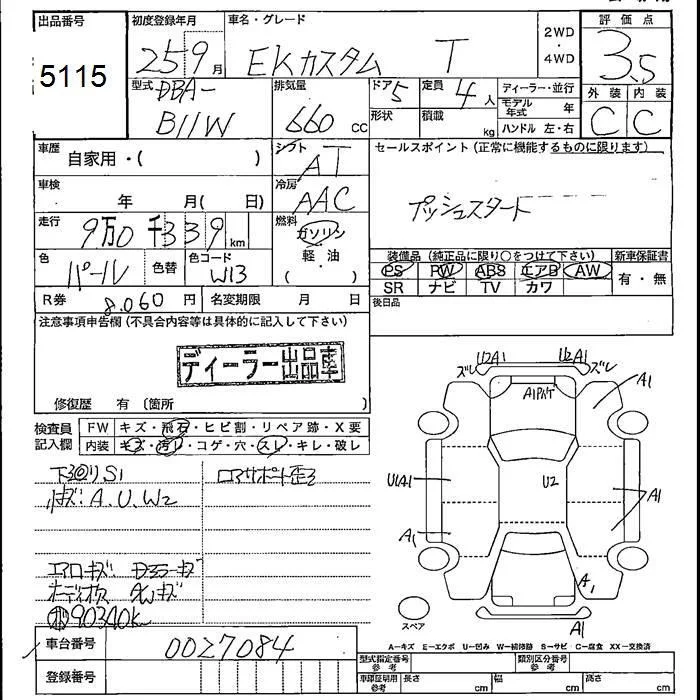 出品番号
5115
初度登録年月
25 9月
車名・グレード
EKカスタム T
2WD
・
4WD
評価点
3.5
外装 内装
C C
型式
DBA-
B11W
排気量
660 cc
ドア
5
形状
定員
4人
積載
kg
ディーラー・並行
モデル年式 年
ハンドル 左・右
車歴
自家用・( )
シフト
AT
セールスポイント (正常に機能するものに限ります)
プッシュスタート
車検
年 月( 日)
冷房
AAC
走行
9万0千339km
燃料
ガソリン
軽・油
( )
色
パール
色替
色コード
W13
装備品 (純正品に限り○をつけて下さい)
PS PW ABS エアB AW
SR ナビ TV カワ
新車保証書
有・無
R券 8,060円
名変期限 月 日
後日品
注意事項申告欄 (不具合内容等は具体的に記入して下さい)
ディーラー出品車
修復歴 有 (箇所 )
検査員
記入欄
FW キズ・飛石・ヒビ割・リペア跡・X要
内装 キズ・汚レ・コゲ・穴・スレ・キレ・破レ
下回りS1
キズ:A.U.W2
ロアサポート歪ミ
エアロキズ
オーディオレス AWキズ
90340k
ズレ U2A1 U2A1 ズレ
A1P外T
A1
U1A1
U2
A1
A1
A1
A1
スペア
A-キズ E-エクボ U-凹み W-補修跡 S-サビ C-腐食 XX-交換済
車台番号
0027084
登録番号
型式指定番号
参考
類別区分番号
参考
車庫証明用
参考
長さ cm
幅 cm
高さ cm